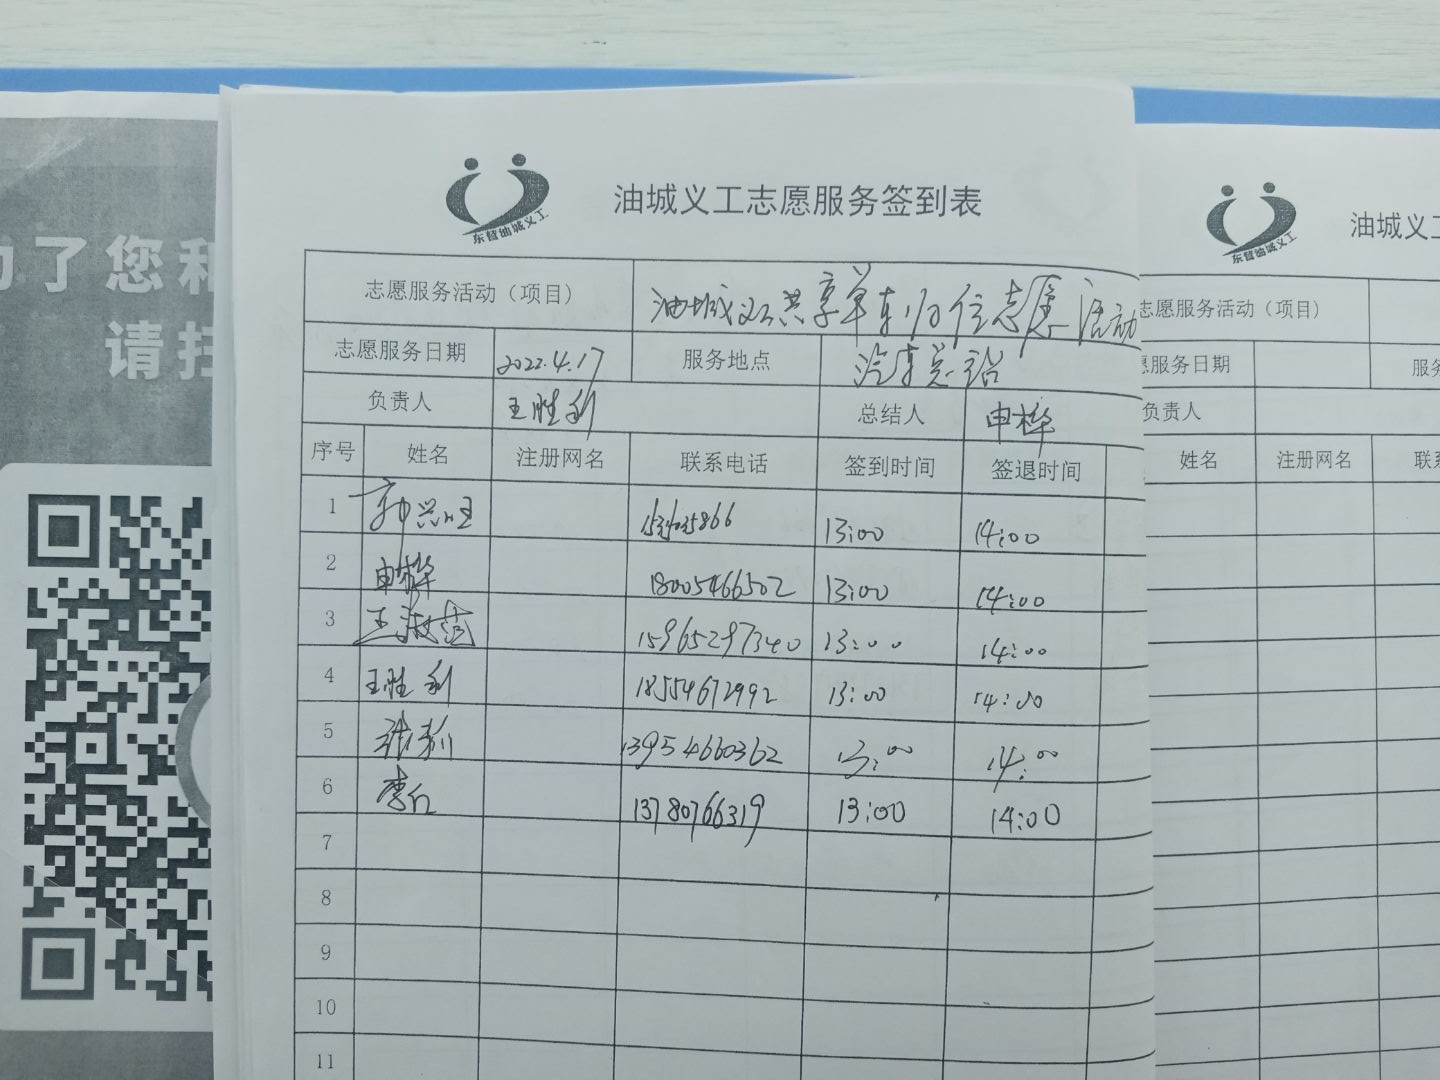 了您和
请扫
东营油城义工
油城义工志愿服务签到表
志愿服务活动（项目） 油城义工共享单车归位志愿活动
志愿服务日期 2022.4.17 服务地点 汽车总站
负责人 王胜利 总结人 申桦
序号 姓名 注册网名 联系电话 签到时间 签退时间
1 13:00 14:00
2 申桦 18005466502 13:00 14:00
3 15965297340 13:00 14:00
4 王胜利 18554672992 13:00 14:00
5 13954660362 13:00 14:00
6 13780766319 13:00 14:00
7
8
9
10
11
东营油城义工
油城义工
志愿服务活动（项目）
愿服务日期 服务
负责人
姓名 注册网名 联系